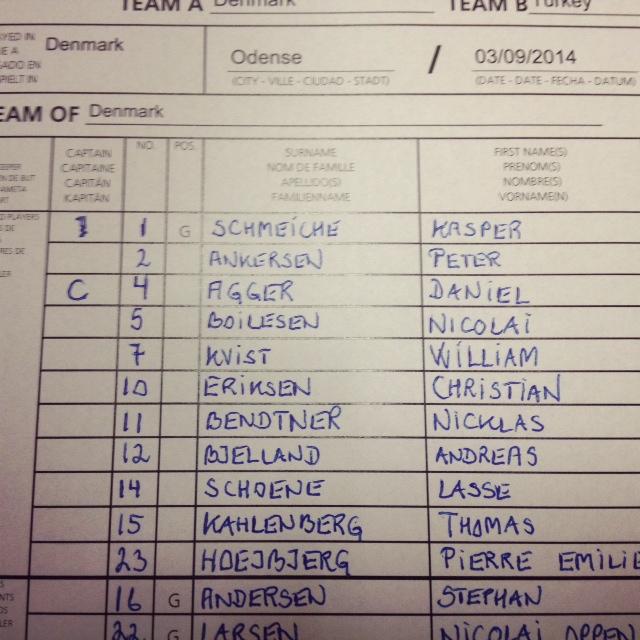 TEAM A Denmark TEAM B Turkey
Denmark Odense / 03/09/2014
(CITY - VILLE - CIUDAD - STADT) (DATE - DATE - FECHA - DATUM)
TEAM OF Denmark
CAPTAIN NO. POS. SURNAME FIRST NAME(S)
CAPITAINE NOM DE FAMILLE PRENOM(S)
CAPITÁN APELLIDO(S) NOMBRE(S)
KAPITÄN FAMILIENNAME VORNAME(N)
1 1 G SCHMEICHE KASPER
2 ANKERSEN PETER
C 4 AGGER DANIEL
5 BOILESEN NICOLAI
7 KVIST WILLIAM
10 ERIKSEN CHRISTIAN
11 BENDTNER NICKLAS
12 BJELLAND ANDREAS
14 SCHOENE LASSE
15 KAHLENBERG THOMAS
23 HOEJBJERG PIERRE EMILIE
16 G ANDERSEN STEPHAN
22 G LARSEN NICOLAI OPPEN